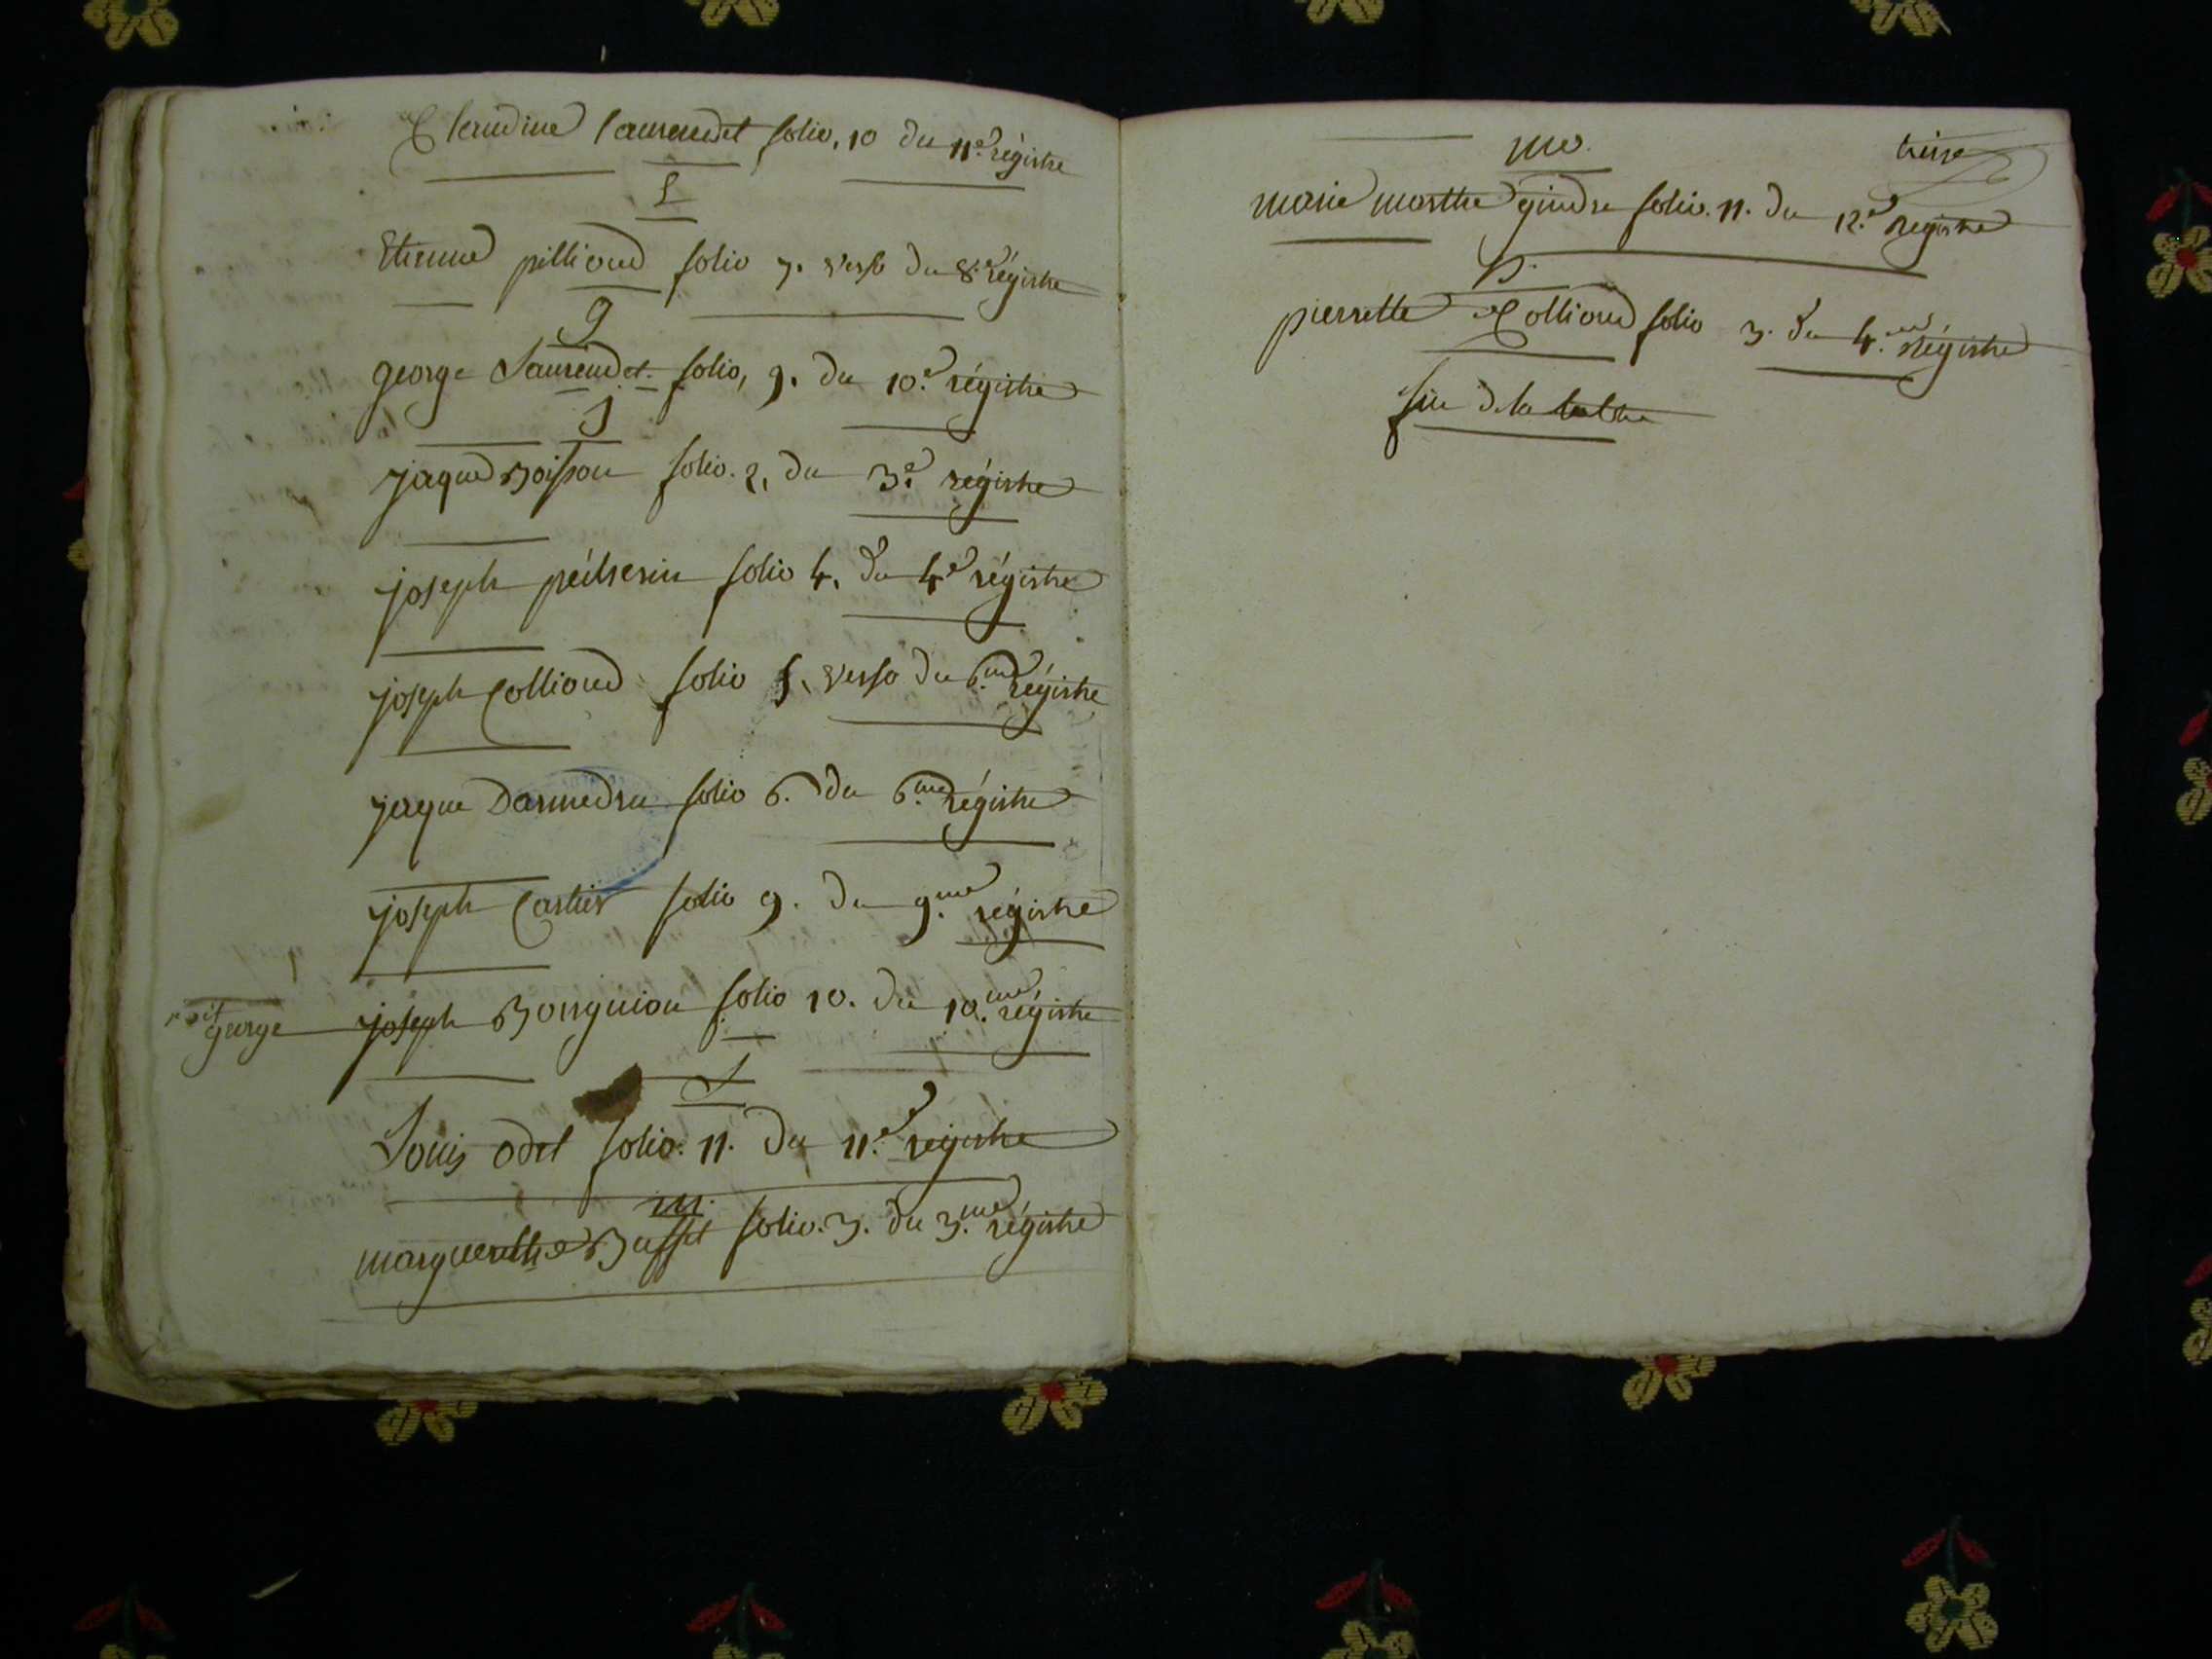 Claudine Laurendet folio, 10 du 11e régistre
E
Etienne pillioud folio 7. verso du 8.e régistre
g
george Laurendet folio, 9. du 10.e régistre
J
jaque Boisson folio. 2, du 3.e régistre
joseph folio 4. du 4e régistre
joseph Collioud folio 5, verso du 6.me régistre
jaque Darmedru folio 6. du 6.me régistre
joseph Cartier folio 9. du 9.me régistre
george joseph Bonguiou folio 10. du 10.me régistre
L
Louis odet folio. 11. du 11.e registre
m.
margueritte Buffet folio. 3. du 3.me régistre
treize
marie marthe gindre folio. 11. du 12.e registre
p.
pierrette Collioud folio 3. du 4.me régistre
fin de la table